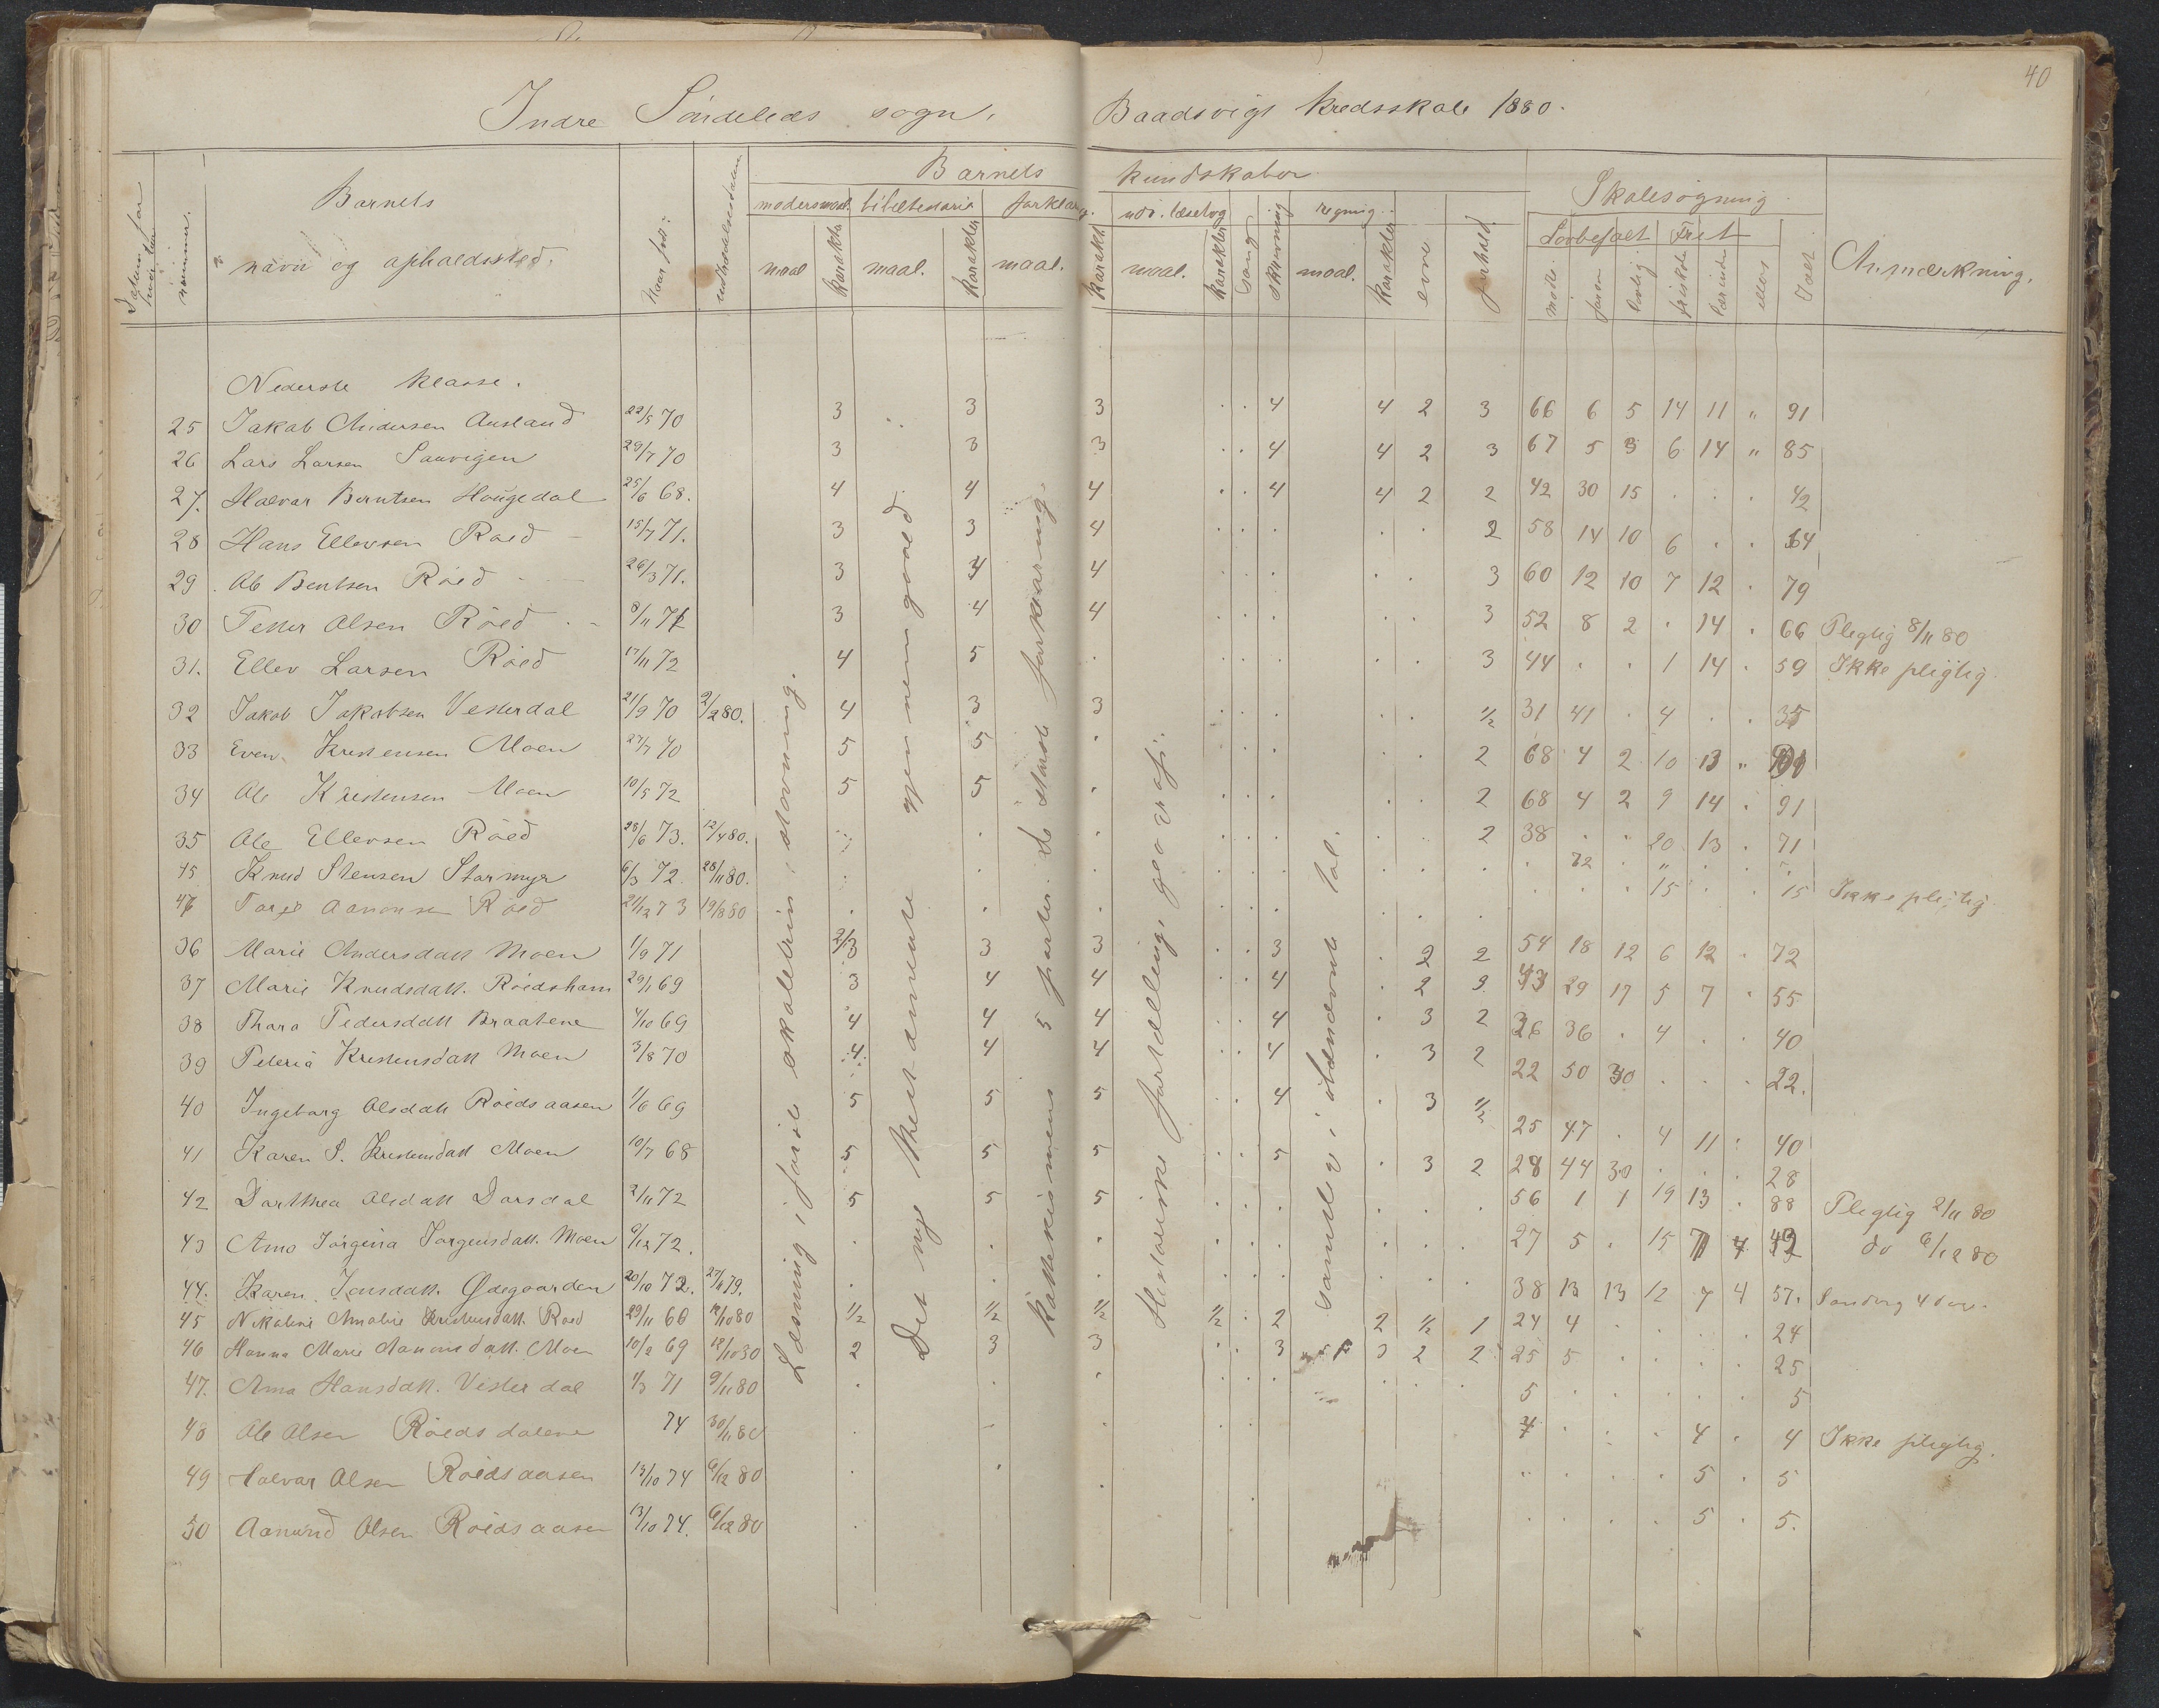 40
Indre Söndeleds sogn. Baadsvigs kredsskole 1880.
Barnets kundskaber
Skolesøgning
Barnets
navn og opholdssted.
nummer.
Naar fød.
modersmaal. bibelhistorie forklaring. udv. læsebog sang skrivning regning. evne forhold.
maal karakter maal. karakter maal. karakt. maal. karakter maal. karakter
Lovbefalet Frit
møde forsøm lovlig friskole ellers Ialt
Anmærkning.
Læsning i förste skoletrin, stavning.
Det nye thestamente gjennemgaaed.
Kattekismens 5 parter. de störste forklaring.
Historiske fortælling, geografi.
samtlige i ubenævnte tal.
Nederste klasse.
25 Jakob Andersen Ausland 22/5 70 3 3 3 4 4 2 3 66 6 5 14 11 " 91
26 Lars Larsen Sauvigen 29/7 70 3 3 3 4 4 2 3 67 5 3 6 14 " 85
27. Halvar Berntsen Hougedal 25/6 68. 4 4 4 4 4 2 2 42 30 15 42
28 Hans Ellevsen Röed 15/7 71. 3 3 4 2 58 14 10 6 64
29 Ole Bentsen Röed 26/3 71. 3 4 4 3 60 12 10 7 12 79
30 Petter Olsen Röed 8/11 72 3 4 4 3 52 8 2 14 66 Pligtig 8/11 80
31. Ellev Larsen Röed 17/11 72 4 5 3 44 1 14 59 Ikke pligtig
32 Jakob Jakobsen Vesterdal 21/9 70 2/2 80. 4 3 3 1/2 31 41 4 35
33 Even Kristensen Moen 27/7 70 5 5 2 68 4 2 10 13 " 91
34 Ole Kristensen Moen 10/5 72 5 5 2 68 4 2 9 14 91
35 Ole Ellevsen Röed 28/6 73. 12/4 80. 2 38 20 13 71
45 Knud Stensen Stormyr 6/3 72 28/11 80. 72
47 Tarje Aanonsen Röed 21/12 73 19/8 80 15 15 Ikke pligtig
36 Marie Andersdatt Moen 1/9 71 2/3 3 3 3 2 2 54 18 12 6 12 72
37 Marie Knudsdatt. Röedsham 29/1 69 3 4 4 4 2 2 43 29 17 5 7 55
38 Thara Pedersdatt Braatene 4/10 69 4 4 4 4 3 2 36 36 4 40
39 Peteria Kristensdatt Moen 3/8 70 4 4 4 4 3 2 22 50 30 22.
40 Ingeborg Olsdatt Röedsaasen 1/6 69 5 5 5 4 3 1/2 25 47 4 11 40
41 Karen S. Kristensdatt Moen 10/7 68 5 5 5 5 3 2 28 44 30 28
42 Dorthea Olsdatt Dorsdal 2/11 72 5 5 5 56 1 1 19 13 88 Pligtig 2/11 80
43 Anne Jörgina Jörgensdatt. Moen 6/12 72. 27 5 15 7 49 do 6/12 80
44. Karen Jensdatt. Ødegaarden 20/10 72. 27/11 79. 38 13 13 12 7 4 57.
45 Nikoline Amalie Kristensdatt. Röed 29/11 66 12/10 80 1/2 1/2 1/2 1/2 2 2 1/2 1 24 4 24
46 Hanna Marie Aanonsdatt. Moen 10/2 69 12/10 80 2 3 3 3 3 2 2 25 5 25
47. Anna Hansdatt. Vesterdal 1/3 71 9/11 80 5 5
48 Ole Olsen Röedsdalene 74 30/11 80 4 4 Ikke pligtig.
49 Halvar Olsen Röedsaasen 13/10 74 6/12 80 5 5
50 Aanund Olsen Röedsaasen 13/10 74. 6/12 80 5 5.